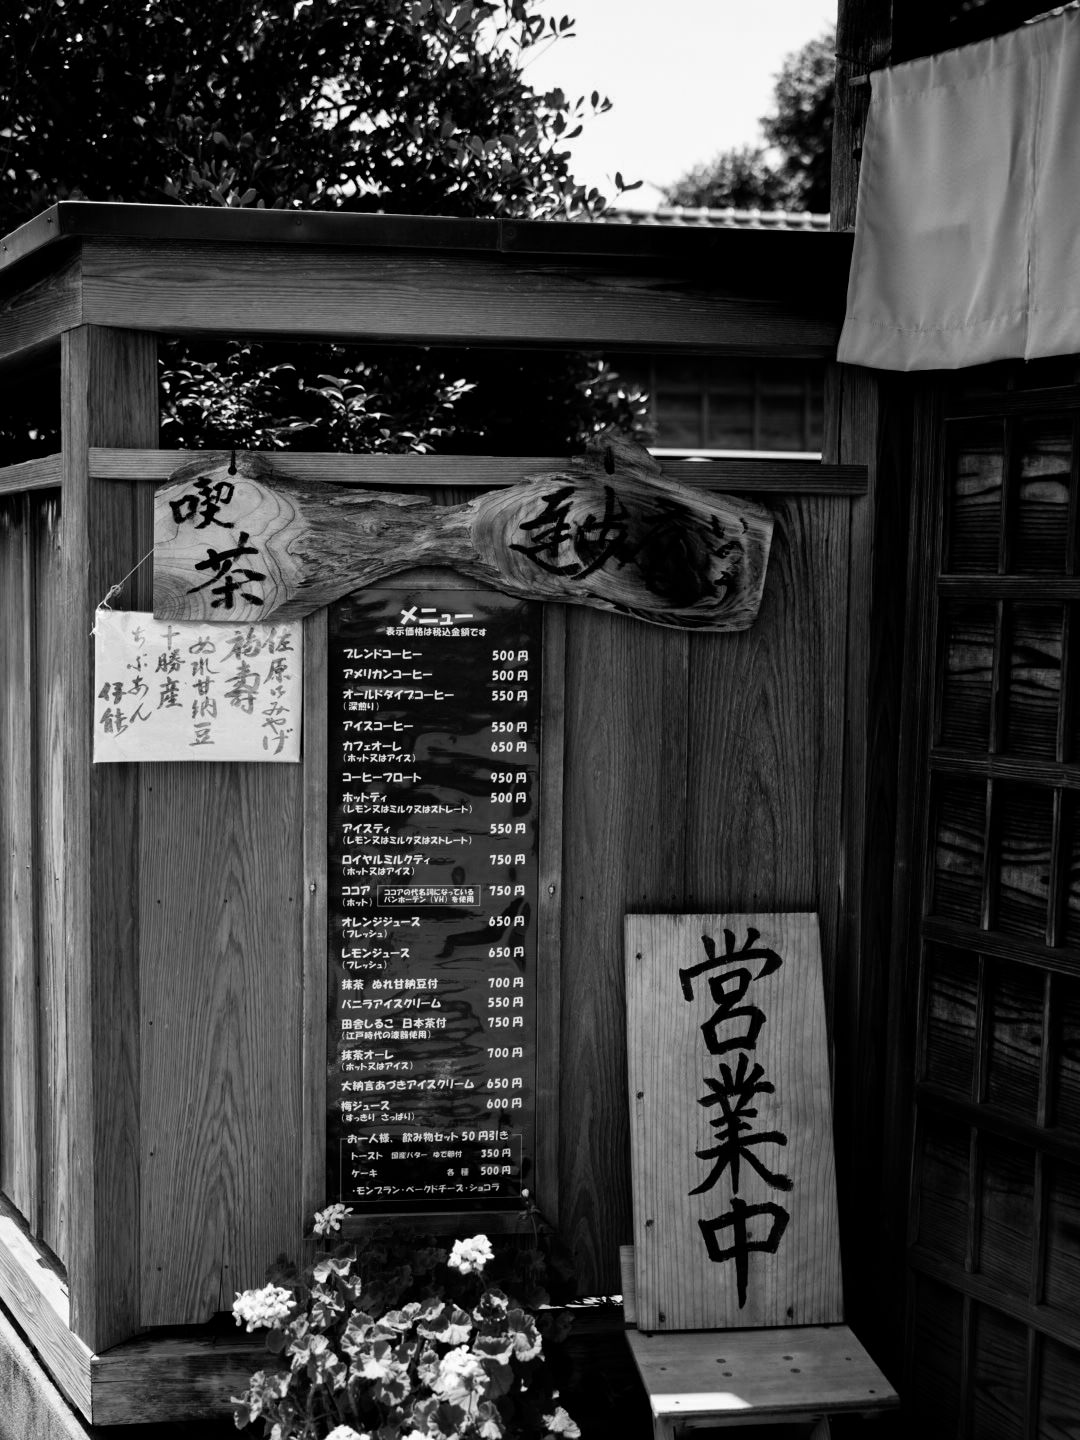 喫茶
佐原のみやげ
福寿
ぬれ甘納豆
十勝産
ちぶあん
伊能
メニュー
表示価格は税込金額です
ブレンドコーヒー 500円
アメリカンコーヒー 500円
オールドタイプコーヒー 550円
(深煎り)
アイスコーヒー 550円
カフェオーレ 650円
(ホット又はアイス)
コーヒーフロート 950円
ホットティ 500円
(レモン又はミルク又はストレート)
アイスティ 550円
(レモン又はミルク又はストレート)
ロイヤルミルクティ 750円
(ホット又はアイス)
ココア ココアの代名詞になっている 750円
(ホット) バンホーテン(VH)を使用
オレンジジュース 650円
(フレッシュ)
レモンジュース 650円
(フレッシュ)
抹茶 ぬれ甘納豆付 700円
バニラアイスクリーム 550円
田舎しるこ 日本茶付 750円
(江戸時代の漆器使用)
抹茶オーレ 700円
(ホット又はアイス)
大納言あづきアイスクリーム 650円
梅ジュース 600円
(すっきり さっぱり)
お一人様、飲み物セット50円引き
トースト 国産バター ゆで卵付 350円
ケーキ 各種 500円
・モンブラン・ベークドチーズ・ショコラ
営業中